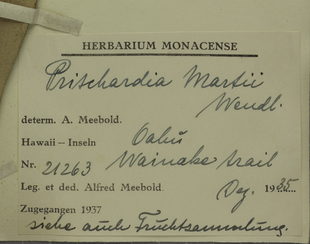 HERBARIUM MONACENSE
Pritschardia Martii
Wendl.
determ. A. Meebold.
Hawaii – Inseln Oahu
Nr. 21263 Wainake trail
Leg. et ded. Alfred Meebold. Dez. 1935.
Zugegangen 1937
siehe auch Fruchtsammlung.